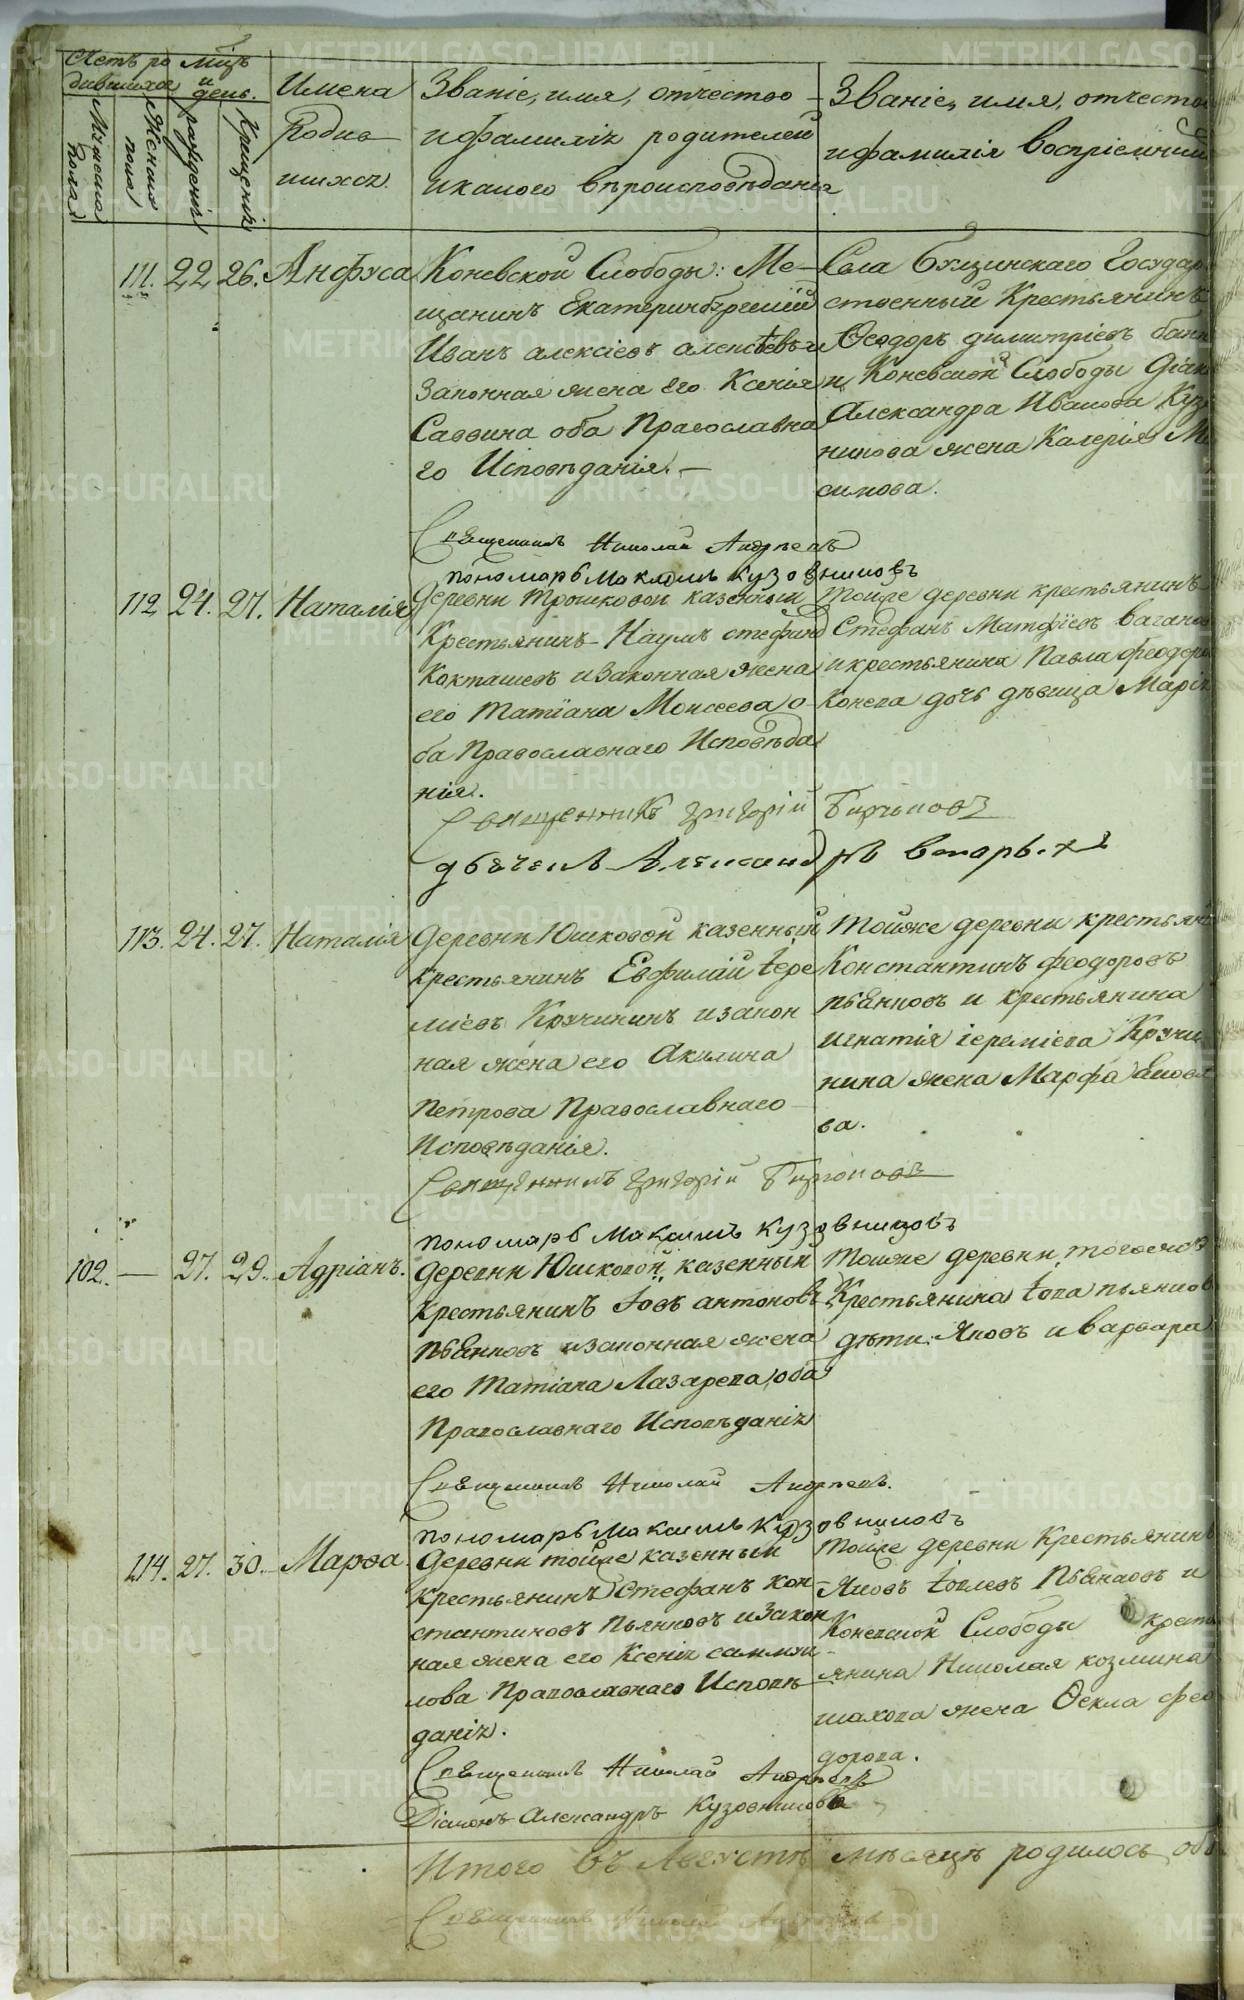 Счетъ ро
дившихся
Мужеска
пола
Женска
пола
Мцъ
и
день.
рожденія
Крещенія
Имена
Родив
шихся.
Званіе, имя, отчество
и фамилія родителей
и какого вѣроисповѣданія
Званіе, имя, отчество
и фамилія воспріемник
111. 22 26. Анфуса
Коневской Слободы: Ме-
щанинъ Екатеринбургскій
Иванъ алексіевъ алексѣевъ и
Законная жена его Ксенія
Саввина оба Православна
го Исповѣданія.
Села Бугцинскаго Государ
ственный Крестьянинъ
Ѳеодоръ димитріевъ
и Коневской Слободы Діак
Александра Иванова Куз
никова жена Калерія М
симова.
Священникъ Николай Андреевъ
пономарь Максимъ Кузовниковъ
112 24. 27. Наталія
Деревни Трошковой казенный
Крестьянинъ Наумъ стефановъ
Кокташевъ и законная жена
его Татіана Моисеева о-
ба Православнаго Исповѣда
нія.
Тойже деревни крестьянинъ
Стефанъ Матфіевъ Ваганов
и крестьянина Павла феодоро
Конева дочь дѣвица Марія
Священникъ Григорій Бирюковъ
дьячекъ Александръ
113. 24. 27. Наталія
Деревни Юшковой казенный
крестьянинъ Евфимій Іере
міевъ Кручининъ и закон
ная жена его Акилина
Петрова Православнаго
Исповѣданія.
Тойже деревни крестьян
Константинъ феодоровъ
пьянковъ и крестьянина
игнатія іереміева Кручи
нина жена Марфа Яковл
ва.
Священникъ Григорій Бирюковъ
пономарь Максимъ Кузовниковъ
102. — 27. 29. Адріанъ.
Деревни Юшковой казенный
крестьянинъ Іовъ антоновъ
пьянковъ и законная жена
его Татіана Лазарева оба
Православнаго Исповѣданія
Тойже деревни, тогоже
Крестьянина Іова пьянков
дѣти: Яковъ и Варвара
Священникъ Николай Андреевъ.
пономарь Максимъ Кузовниковъ
114. 27. 30. Марѳа
Деревни тойже казенный
крестьянинъ Стефанъ Кон-
стантиновъ Пьянковъ и Закон
ная жена его Ксенія самуи-
лова Православнаго Исповѣ
данія.
Тойже деревни Крестьянинъ
Яковъ Іовлевъ Пьянковъ и
Коневской Слободы крест
янина Николая козмина
шахова жена Ѳекла фео
дорова.
Священникъ Николай Андреевъ
Діаконъ Александръ Кузовниковъ
Итого въ Августѣ мѣсяцѣ родилось об
Священникъ Николай Андреевъ
METRIKI.GASO-URAL.RU